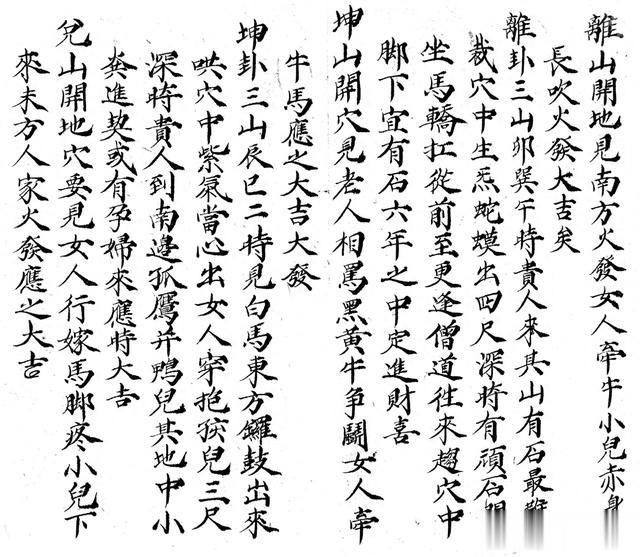 離山開地見南方火發女人牽牛小兒赤身
長吹火發大吉矣
離卦三山卯巽午時貴人來其山有石最
裁穴中生炁蛇蟆出四尺深時有頑石
坐馬轎扛從前至更逢僧道往來趨穴中
脚下宜有石六年之中定進財喜
坤山開穴見老人相罵黑黃牛爭鬭女人牽
牛馬應之大吉大發
坤卦三山辰巳二時見白馬東方鑼鼓出來
哄穴中紫氣當心出女人穿抱孩兒三尺
深時貴人到南邉孤鴈并鴨兒其地中小
粪進契或有孕婦來應時大吉
兌山開地穴要見女人行嫁馬脚疼小兒下
來未方人家火發應之大吉